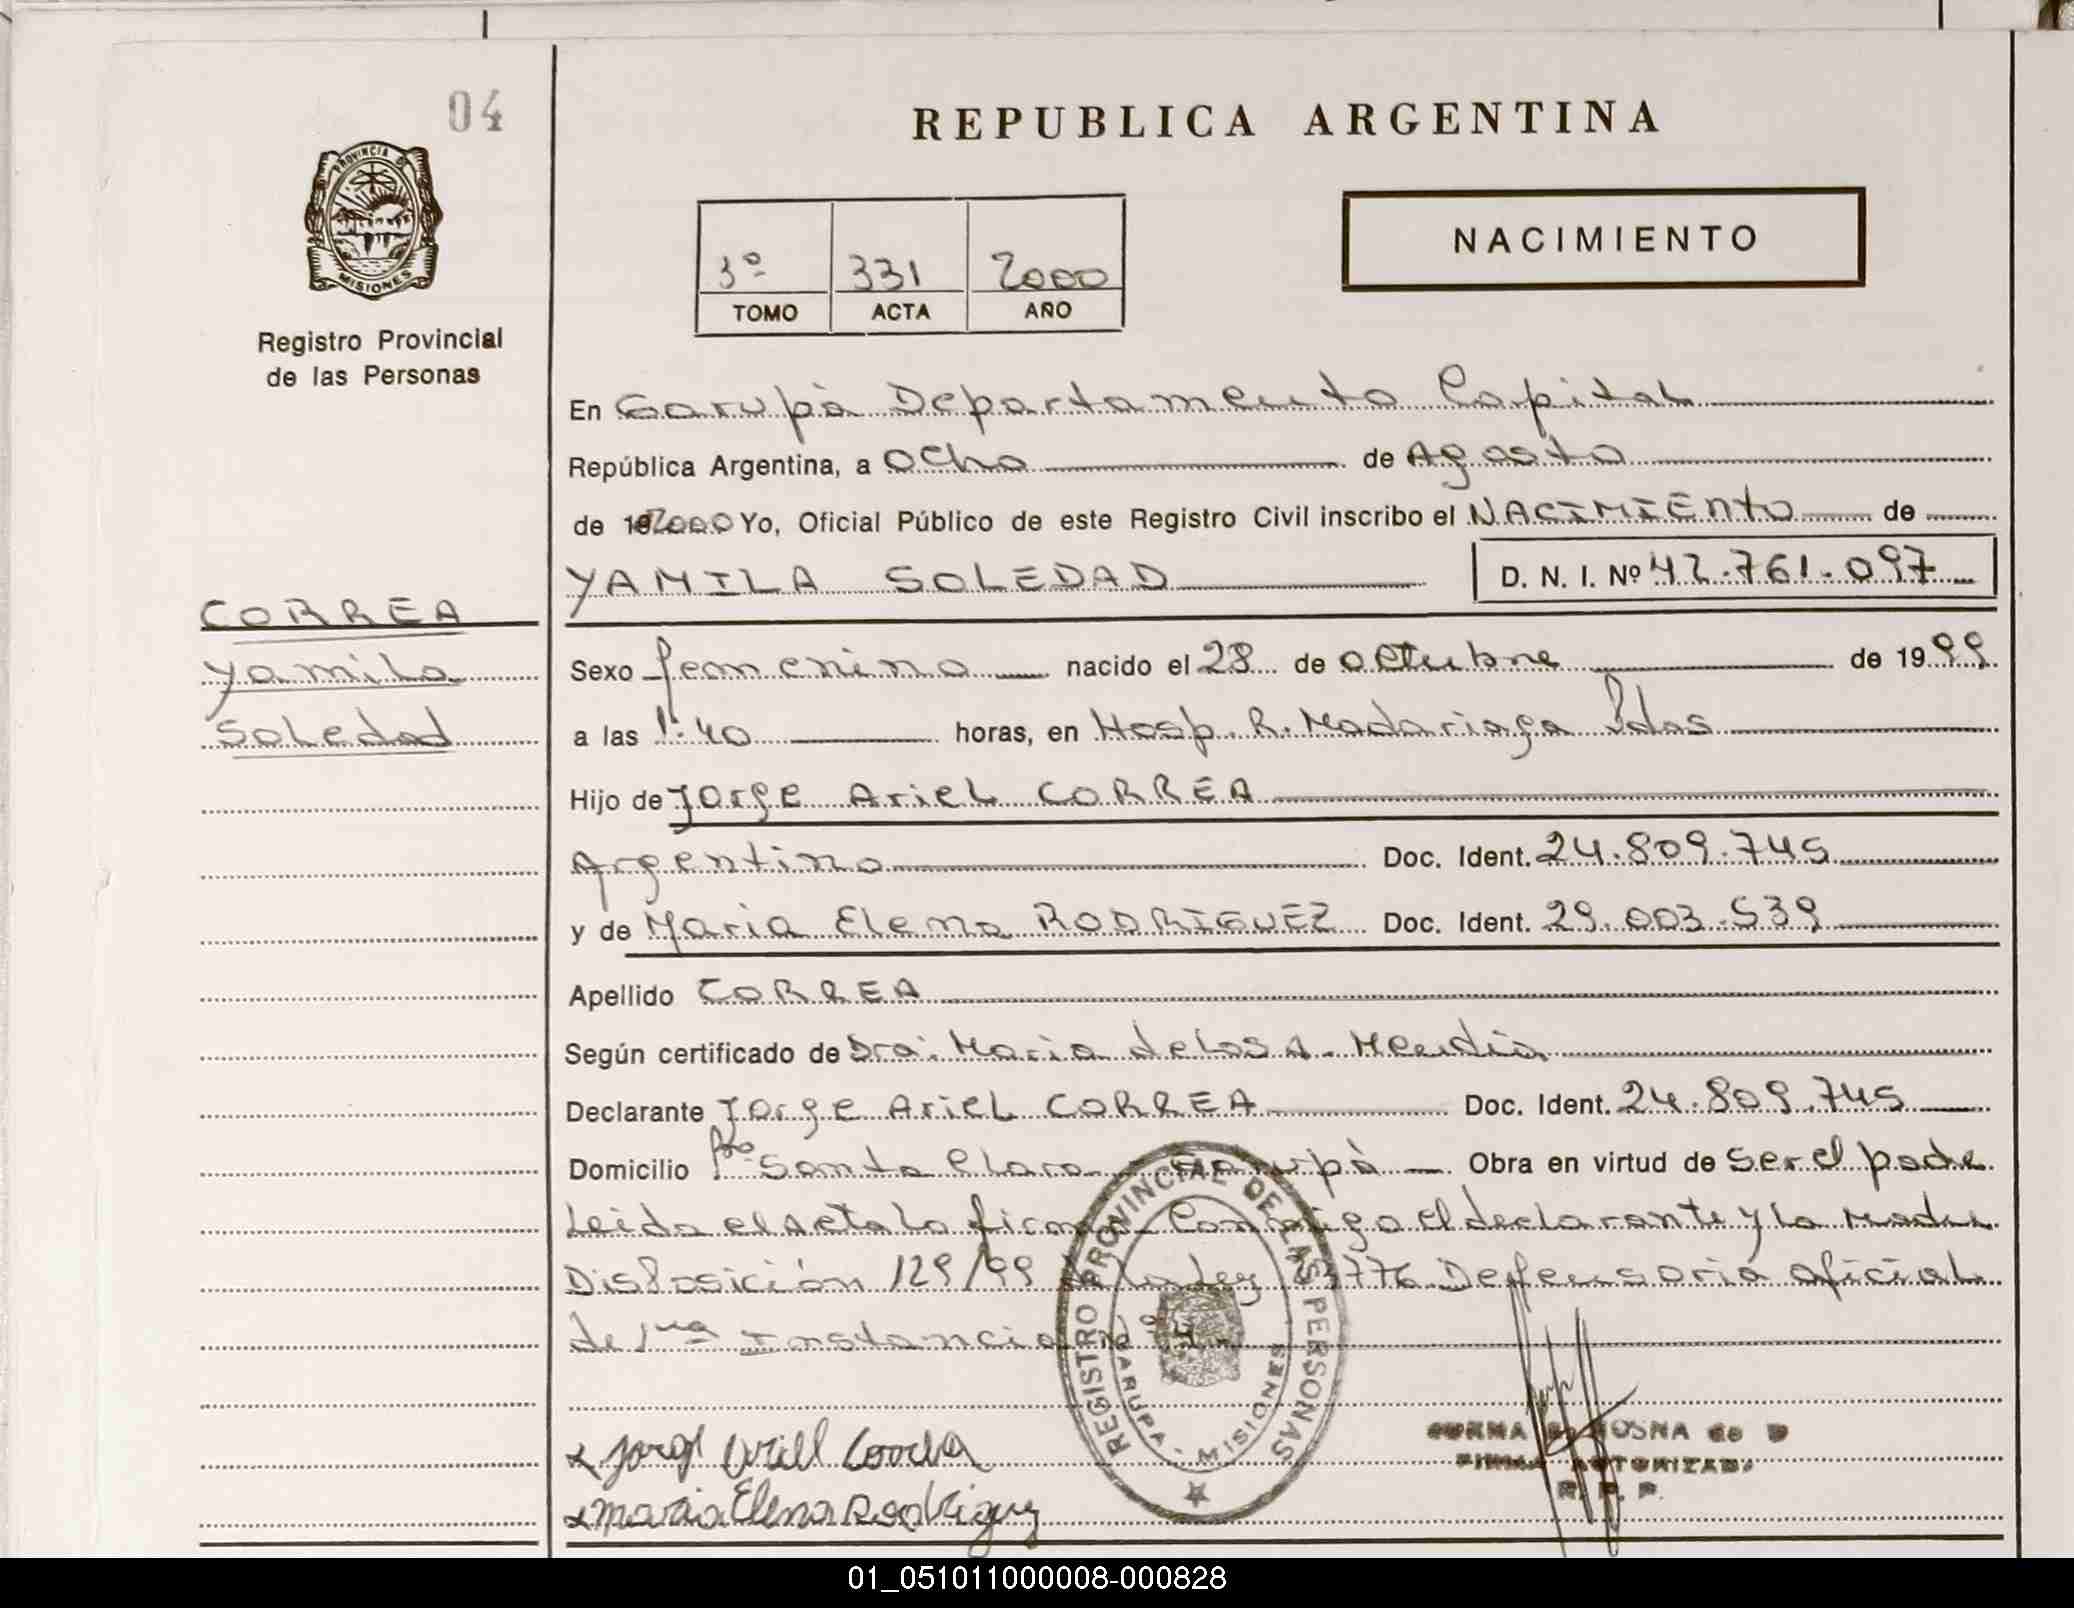 04
REPUBLICA ARGENTINA
PROVINCIA DE
MISIONES
NACIMIENTO
3º 331 2000
TOMO ACTA AÑO
Registro Provincial
de las Personas
En Garupà Departamento Capital
República Argentina, a ocho de Agosto
de 19 2000 Yo, Oficial Público de este Registro Civil inscribo el NACIMIENTO de
YAMILA SOLEDAD D. N. I. Nº 42.761.097
CORREA
Yamila
Soledad
Sexo femenino nacido el 28 de octubre de 1999
a las 1:40 horas, en Hosp. R. Madariaga Pdas
Hijo de Jorge Ariel CORREA
Argentino Doc. Ident. 24.809.745
y de Maria Elena RODRIGUEZ Doc. Ident. 29.003.539
Apellido CORREA
Según certificado de Dra. Maria de los A. Mendia
Declarante Jorge Ariel CORREA Doc. Ident. 24.809.745
Domicilio Bº Santa Clara Garupà Obra en virtud de ser el padre
Leida el acta la firman conmigo el declarante y la madre
Disposición 129/99 Ley Defensoria oficial
de 1ra Instancia Nº 4
REGISTRO PROVINCIAL DE LAS PERSONAS
GARUPA - MISIONES
x Jorge Ariel Correa
x Maria Elena Rodriguez
NORMA de D
FIRMA AUTORIZADA
R. P. P.
01_051011000008-000828